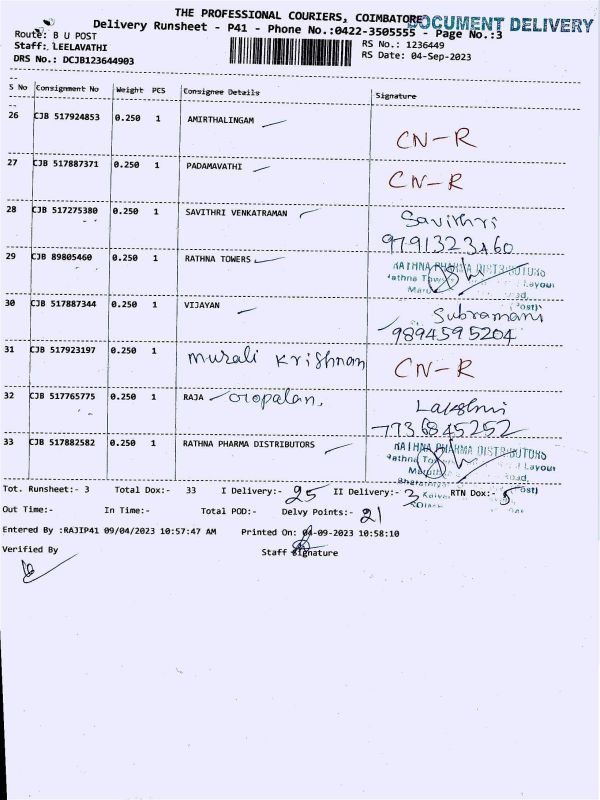 THE PROFESSIONAL COURIERS, COIMBATORE
DOCUMENT DELIVERY
Delivery Runsheet - P41 - Phone No.:0422-3505555 - Page No.:3
Route: B U POST
RS No.: 1236449
Staff: LEELAVATHI
RS Date: 04-Sep-2023
DRS No.: DCJB123644903
S No Consignment No Weight PCS Consignee Details Signature
26 CJB 517924853 0.250 1 AMIRTHALINGAM CN-R
27 CJB 517887371 0.250 1 PADAMAVATHI CN-R
28 CJB 517275380 0.250 1 SAVITHRI VENKATRAMAN Savithri
9791323460
29 CJB 89805460 0.250 1 RATHNA TOWERS RATHNA PHARMA DISTRIBUTORS
Layout
30 CJB 517887344 0.250 1 VIJAYAN Subramani
9894595204
31 CJB 517923197 0.250 1 Murali Krishnan CN-R
32 CJB 517765775 0.250 1 RAJA Gopalan. Lakshmi
7736845252
33 CJB 517882582 0.250 1 RATHNA PHARMA DISTRIBUTORS RATHNA PHARMA DISTRIBUTORS
Layout
Tot. Runsheet:- 3 Total Dox:- 33 I Delivery:- 25 II Delivery:- 3 RTN Dox:- 5
Out Time:- In Time:- Total POD:- Delvy Points:- 21
Entered By :RAJIP41 09/04/2023 10:57:47 AM Printed On: 04-09-2023 10:58:10
Verified By Staff Signature